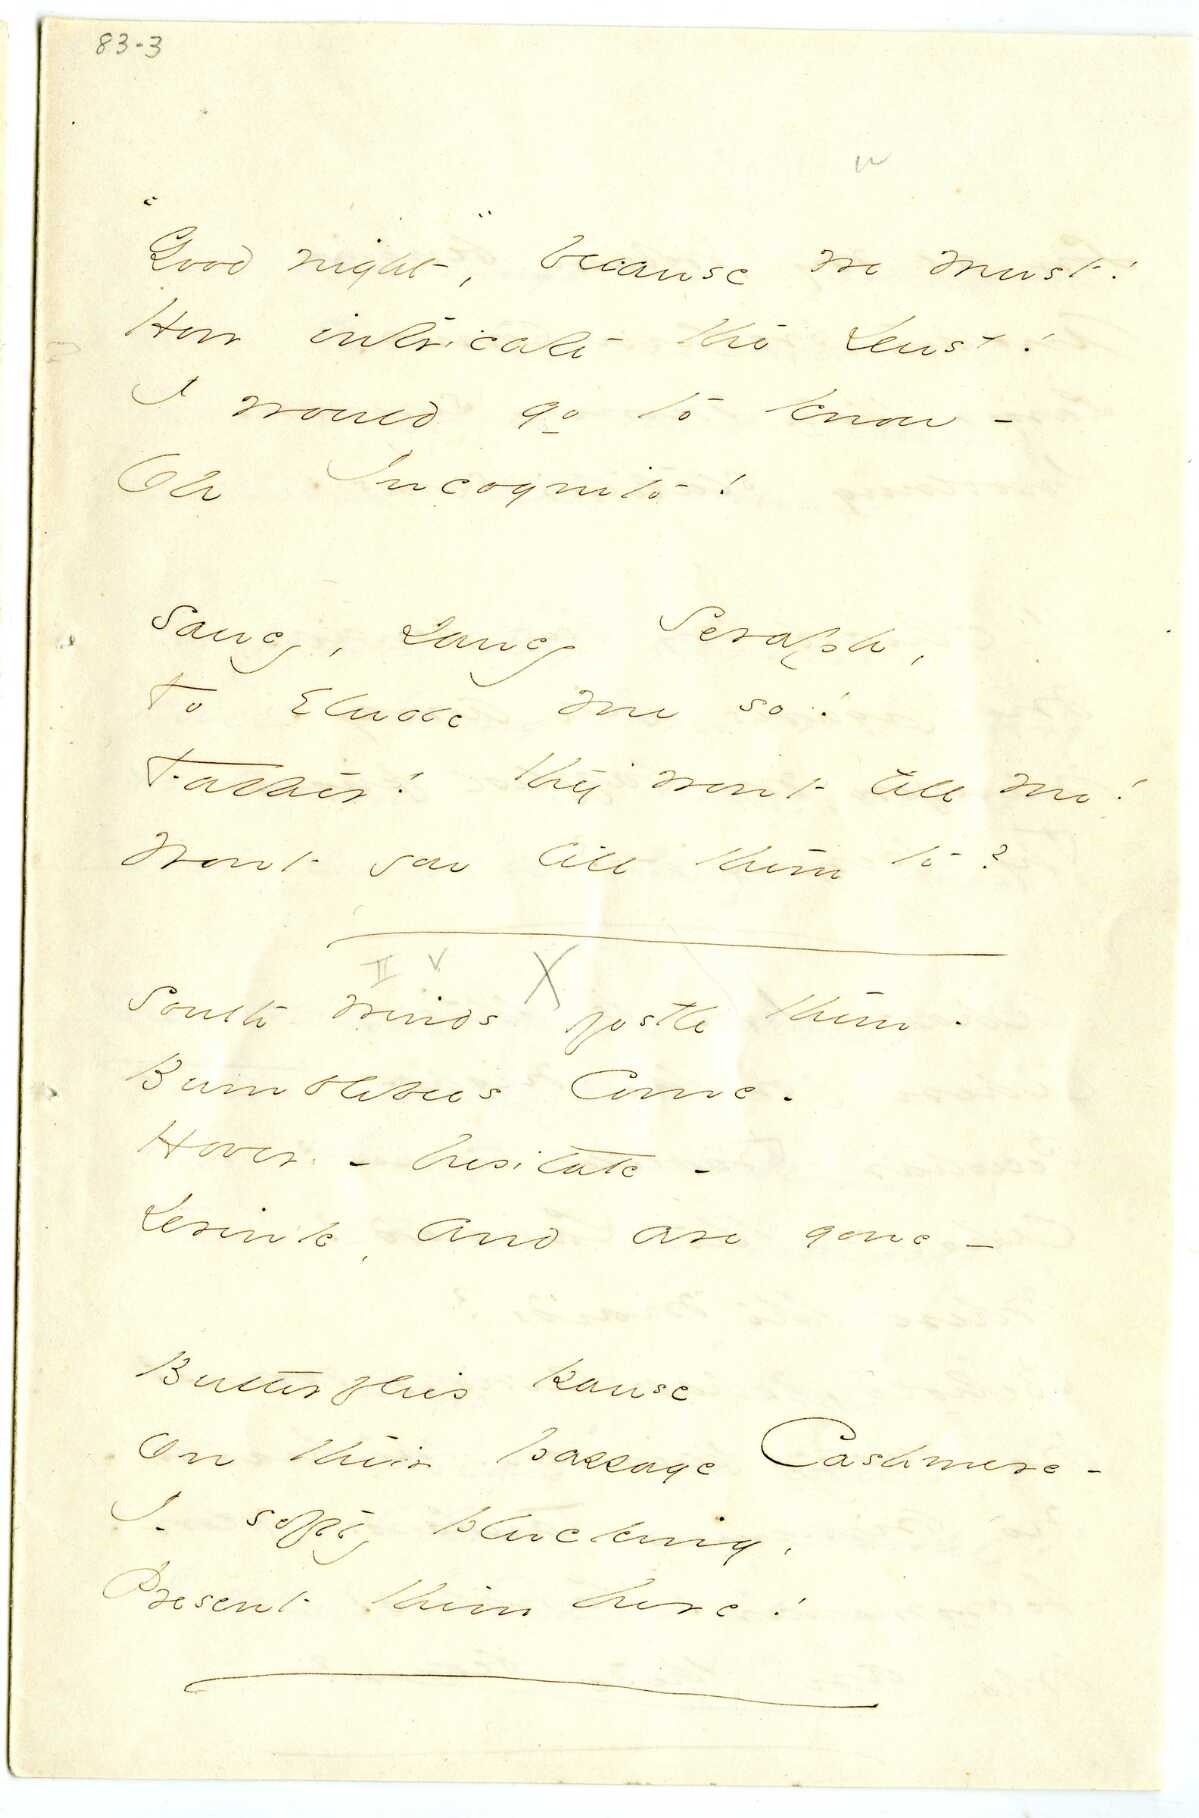 83-3
"Good night", because we must!
How intricate the Dust!
I would go to know -
Oh Incognito!
Saucy, Saucy Seraph,
To Elude me so!
Father! they wont tell me!
Wont you tell them to?
II V X
South Winds jostle them -
Bumblebees Come -
Hover - hesitate -
Drink, and are gone -
Butterflies pause
On their passage Cashmere -
I - softly plucking,
Present them here!